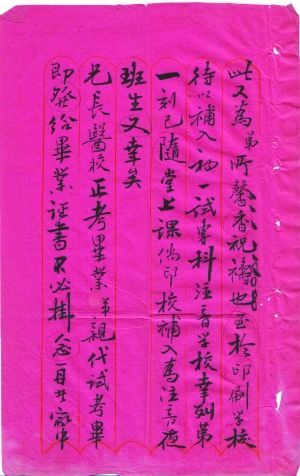 此又為弟所馨香祝禱也至於印刷学校
待以補入初一試專科注音学校幸列第
一刻已隨堂上課倘印校補入為注音夜
班生又幸矣
兄長醫校正考畢業弟親代試考畢
即發給畢業証書不必掛念